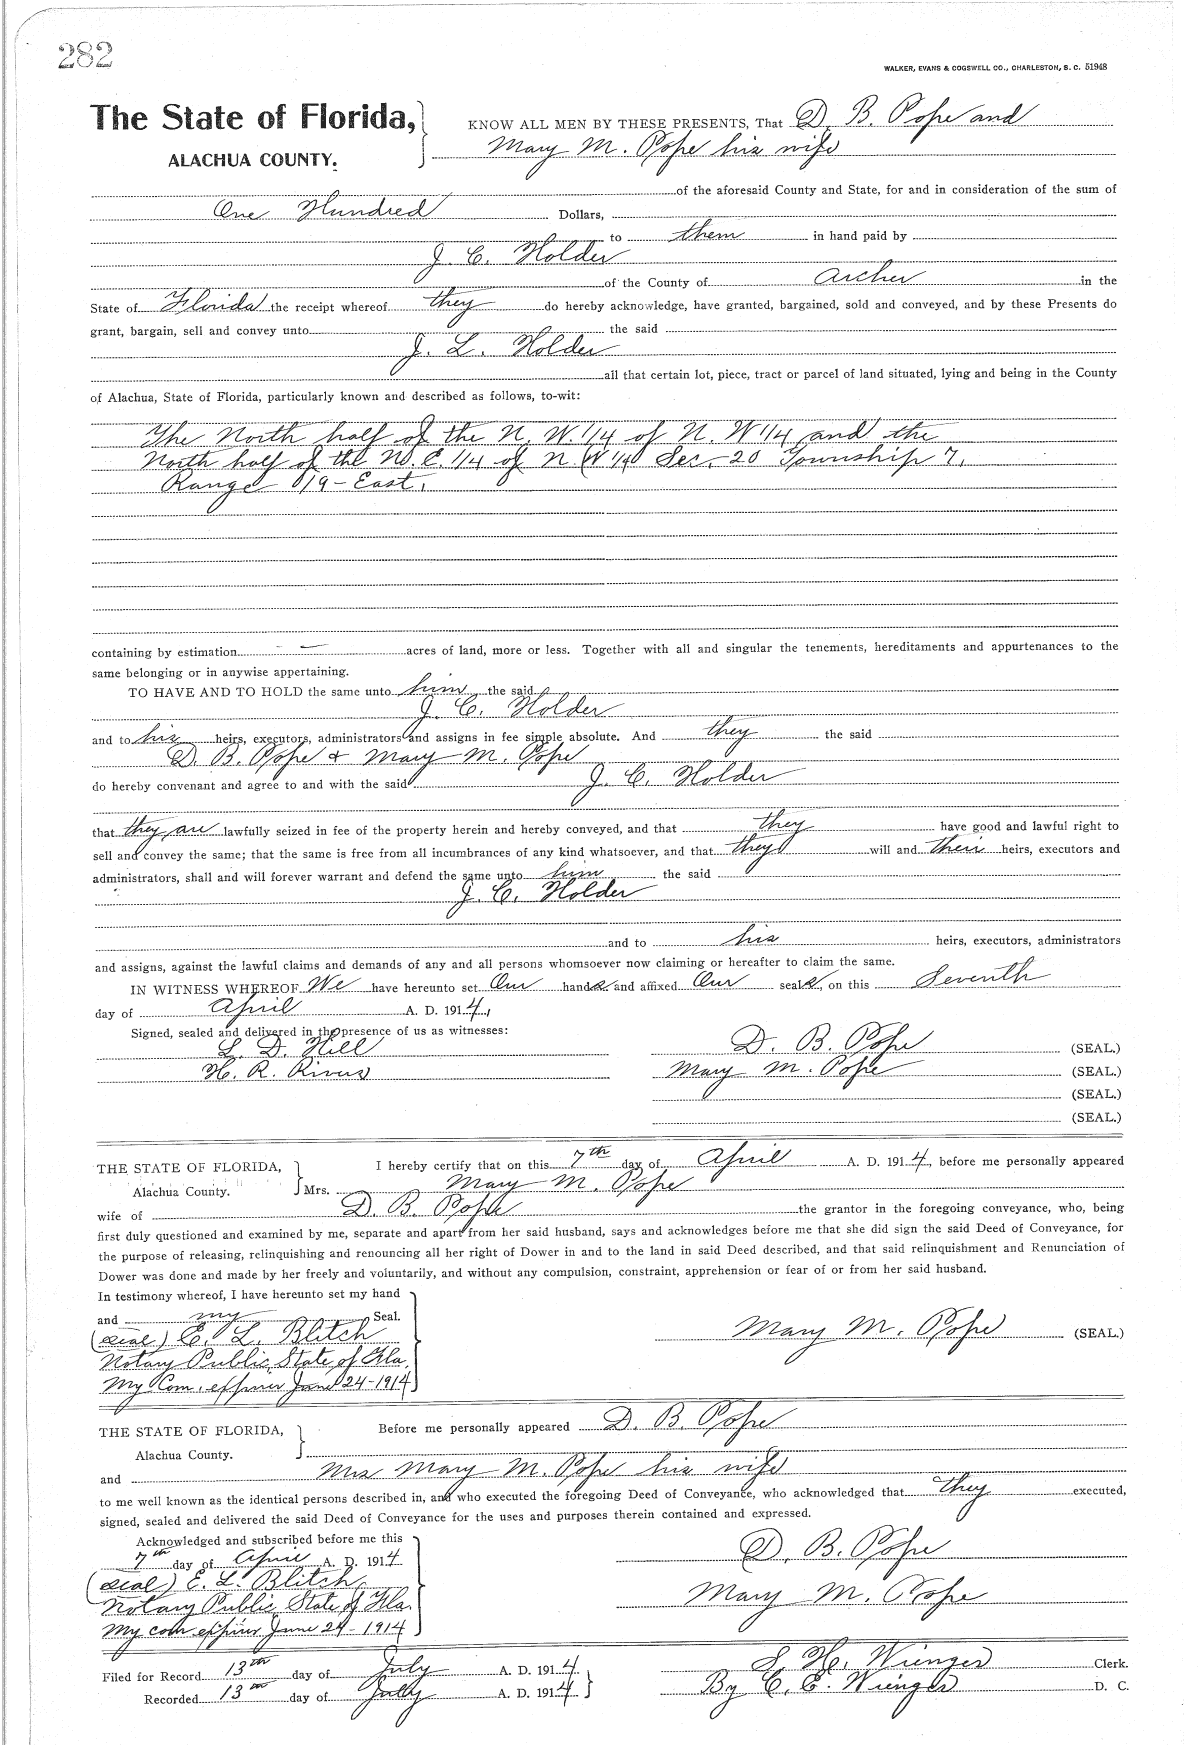 282
WALKER, EVANS & COGSWELL CO., CHARLESTON, S. C. 51948
The State of Florida,
ALACHUA COUNTY.
KNOW ALL MEN BY THESE PRESENTS, That D. B. Pope and
Mary M. Pope his wife
of the aforesaid County and State, for and in consideration of the sum of
One Hundred Dollars,
to them in hand paid by
J. C. Holder
of the County of Archer in the
State of Florida the receipt whereof they do hereby acknowledge, have granted, bargained, sold and conveyed, and by these Presents do
grant, bargain, sell and convey unto the said
J. L. Holder
all that certain lot, piece, tract or parcel of land situated, lying and being in the County
of Alachua, State of Florida, particularly known and described as follows, to-wit:
The North half of the N. W. 1/4 of N. W 1/4 and the
North half of the No. E. 1/4 of N. W 1/4 Sec. 20 Township 7,
Range 19 - East.
containing by estimation — acres of land, more or less. Together with all and singular the tenements, hereditaments and appurtenances to the
same belonging or in anywise appertaining.
TO HAVE AND TO HOLD the same unto him the said
J. C. Holder
and to his heirs, executors, administrators and assigns in fee simple absolute. And they the said
D. B. Pope & Mary M. Pope
do hereby convenant and agree to and with the said J. C. Holder
that they are lawfully seized in fee of the property herein and hereby conveyed, and that they have good and lawful right to
sell and convey the same; that the same is free from all incumbrances of any kind whatsoever, and that they will and their heirs, executors and
administrators, shall and will forever warrant and defend the same unto him the said
J. C. Holder
and to his heirs, executors, administrators
and assigns, against the lawful claims and demands of any and all persons whomsoever now claiming or hereafter to claim the same.
IN WITNESS WHEREOF We have hereunto set Our hands and affixed Our seals, on this Seventh
day of April A. D. 1914,
Signed, sealed and delivered in the presence of us as witnesses:
L. D. Hill D. B. Pope (SEAL.)
H. R. Rivus Mary M. Pope (SEAL.)
(SEAL.)
(SEAL.)
THE STATE OF FLORIDA,
Alachua County.
I hereby certify that on this 7th day of April A. D. 1914, before me personally appeared
Mrs. Mary M. Pope
wife of D. B. Pope the grantor in the foregoing conveyance, who, being
first duly questioned and examined by me, separate and apart from her said husband, says and acknowledges before me that she did sign the said Deed of Conveyance, for
the purpose of releasing, relinquishing and renouncing all her right of Dower in and to the land in said Deed described, and that said relinquishment and Renunciation of
Dower was done and made by her freely and voluntarily, and without any compulsion, constraint, apprehension or fear of or from her said husband.
In testimony whereof, I have hereunto set my hand
and my Seal.
(seal) E. L. Blitch Mary M. Pope (SEAL.)
Notary Public, State of Fla.
My Com. expires June 24-1914
THE STATE OF FLORIDA,
Alachua County.
Before me personally appeared D. B. Pope
and Mrs Mary M. Pope his wife
to me well known as the identical persons described in, and who executed the foregoing Deed of Conveyance, who acknowledged that they executed,
signed, sealed and delivered the said Deed of Conveyance for the uses and purposes therein contained and expressed.
Acknowledged and subscribed before me this
7th day of April A. D. 1914 D. B. Pope
(seal) E. L. Blitch,
Notary Public State of Fla. Mary M. Pope
My com expires June 24-1914
Filed for Record 13th day of July A. D. 1914 S. H. Wienges Clerk.
Recorded 13th day of July A. D. 1914. By C. E. Wienges D. C.